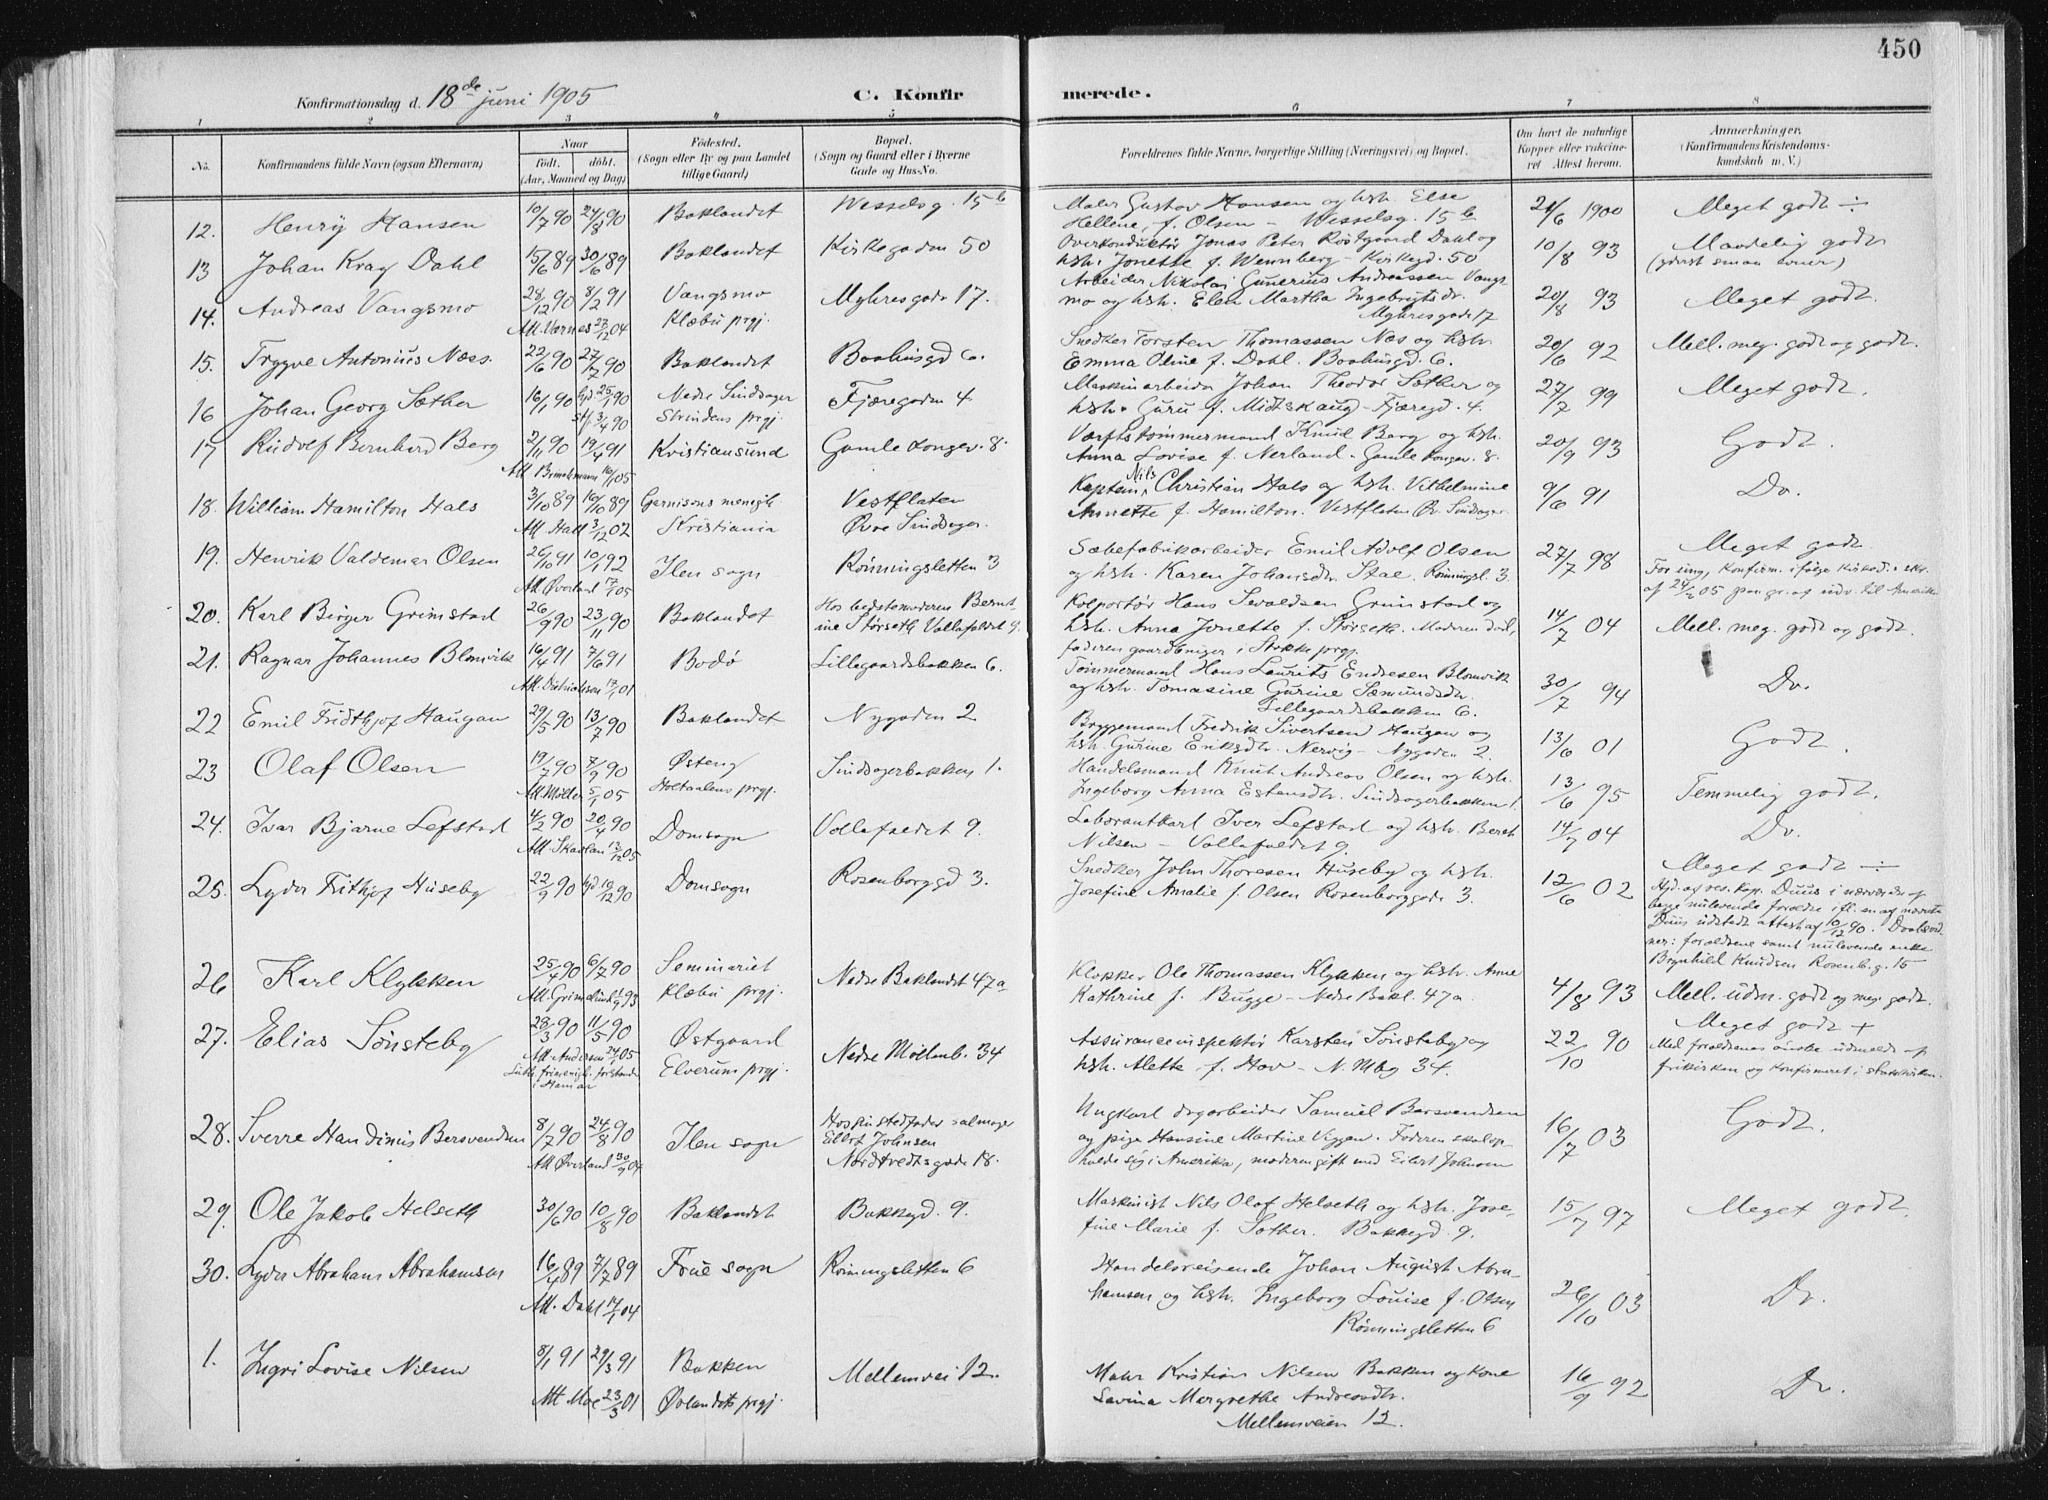 450
Konfirmationsdag d. 18de juni 1905
C. Konfirmerede.
1 2 3 4 5 6 7 8
No. Konfirmandens fulde Navn (ogsaa Efternavn) Naar født, døbt. (Aar, Maaned og Dag) Fødested. (Sogn eller By og paa Landet tillige Gaard) Bopæl. (Sogn og Gaard eller i Byerne Gade og Hus-No. Forældrenes fulde Navne, borgerlige Stilling (Næringsvei) og Bopæl. Om havt de naturlige Kopper eller vaccineret Attest herom. Anmærkninger. (Konfirmandens Kristendomskundskab m. V.)
12. Henry Hansen 10/7 90 24/8 90 Baklandet Wesselsg. 15 b Maler Gustav Hansen og hstr. Else 21/6 1900 Meget godt ÷
Hellene, f. Olsen Wesselsg. 15 b
13 Johan Krag Dahl 15/6 89 30/6 89 Baklandet Kirkegaden 50 Overkonduktør Jonas Peter Røstgaard Dahl og 10/8 93 Maadelig godt
hstr. Jonette f. Wennberg - Kirkegd. 50 (yderst smaa evner)
14. Andreas Vangsmo 28/12 90 8/2 91 Vangsmo Myhresgade 17. Arbeider Nikolai Gunerius Andreassen Vangs- 20/8 93 Meget godt.
Att. Vornes 27/12 04 Klæbu prgj. mo og hstr. Elen Martha Ingebrigtsdr.
Myhresgade 17
15. Trygve Antonius Næss. 22/6 90 27/7 90 Baklandet Baahusgd 6. Snedker Torsten Thomassen Næs og hstr. 20/6 92 Mell. meg. godt og godt.
Emma Oline f. Dahl. Baahusgd. 6.
16 Johan Georg Sæther 16/1 90 hjd 25/1 90 Nedre Singsager Fjæregaden 4 Maskinarbeider Johan Theodor Sæther og 27/7 99 Meget godt.
St. 3/4 90 Strindens prgj. hstr. Guru f. Midtskaug - Fjæregd. 4.
17 Rudolf Bernhard Berg 2/11 90 19/4 91 Kristiansund Gamle Kongev. 8. Værftstømmermand Knud Berg og hstr. 20/9 93 Godt.
05 Anna Lovise f. Nerland - Gamle Kongev. 8.
18. William Hamilton Hals 3/10 89 16/10 89 Garnisons menigh. Vestflaten Kaptein Nils Christian Hals og hstr. Vilhelmine 9/6 91 Do.
Att. Hall 3/12 02 Kristiania Øvre Singsager. Annette f. Hamilton. Vestflaten Øv. Singsager
19. Henrik Valdemar Olsen 26/10 91 10/1 92 Ilen sogn Rønningsletten 3 Sæbefabrikarbeider Emil Adolf Olsen 27/7 98 Meget godt
Att. Øverland 17/1 05 og hstr. Karen Johansdr. Stae. Rønningsl. 3. For ung, konfirm. ifølge Kirked. skr.
af 24/2 05 paa gr. af udv. til Amerika
20. Karl Birger Grimstad 26/9 90 23/11 90 Baklandet Hos bedstemoderen Bernt- Kolportør Hans Sevaldsen Grimstad og 14/7 04 Mell. meg. godt og godt.
ine Størseth Vollafaldet 9. hstr. Anna Jonette f. Størseth. Moderen død,
faderen gaardbruger i Stokke prgj.
21. Ragnar Johannes Blomvik 16/4 91 7/6 91 Bodø Lillegaardsbakken 6. Tømmermand Hans Laurits Endresen Blomvik 30/7 94 Do.
Att. Didrichsen 17/1 01 og hstr. Tomasine Gurine Sæmundsdr.
Lillegaardsbakken 6.
22 Emil Fridthjof Haugan 29/5 90 13/7 90 Baklandet Nygaden 2 Bryggemand Fredrik Sivertsen Haugan og 13/6 01 Godt.
hstr. Gurine Eriksdtr. Nervig - Nygaden 2.
23 Olaf Olsen 19/7 90 7/9 90 Østeng Singsagerbakken 1. Handelsmand Knut Andreas Olsen og hstr. 13/6 95 Temmelig godt.
Att. Møller 5/1 05 Holtaalens prgj. Ingeborg Anna Estensdtr. Singsagerbakken 1.
24. Ivar Bjarne Lefstad 4/2 90 20/4 90 Domsogn Vollafaldet 9. Laborantkarl Iver Lefstad og hstr. Beret 14/7 04 Do.
Att. Skavlan 13/12 05 Nilsen - Vollafaldet 9.
25. Lyder Frithjof Huseby 22/9 90 hjd 10/12 90 Domsogn Rosenborggd 3. Snedker John Thoresen Huseby og hstr. 12/6 02 Meget godt ÷
Josefine Amalie f. Olsen Rosenborggade 3. Hjd. af res. kap. Duus i nærvær af
begge nulevende forældre ifl. en af nævnte
Duus udstedt attest af 10/12 90. Daabsvid-
ner: forældrene samt nulevende enke
Brynhild Knudsen Rosenb.g. 15
26 Karl Klykken 25/4 90 6/7 90 Seminariet Nedre Baklandet 47a Klokker Ole Thomassen Klykken og hstr. Anne 4/8 93 Mell. udm. godt og meg. godt.
Att. Grimelund 1/9 93 Klæbu prgj. Kathrine f. Bugge - Nedre Bakl. 47a.
27. Elias Sønsteby 28/3 90 11/5 90 Østgaard Nedre Møllenb. 34 Assuranceinspektør Karsten Sønsteby og 22/10 90 Meget godt +
Att. Andersen 24/1 05 Elverum prgj. hstr. Alette f. Hov - N. Mbg 34. Med forældrenes ønske udmeldt af
Luth. frimenigh. forstander i Hamar frikirken og konfirmeret i statskirken.
28. Sverre Handinus Bersvendsen 8/7 90 24/8 90 Ilen sogn Hos pustedfader salmager Ungkarl dagarbeider Samuel Bersvendsen 16/7 03 Godt.
Eilert Johnsen og pige Hansine Martine Viggen. Faderen skal op-
Att. Øverland 30/9 04 Nordtvedtsgade 18. holde sig i Amerika, moderen gift med Eilert Johnsen
29. Ole Jakob Helseth 30/6 90 10/8 90 Baklandet Bakkegd. 9. Maskinist Nils Olaf Helseth og hstr. Jose- 15/7 97 Meget godt.
fine Marie f. Sæther. Bakkegd. 9.
30. Lyder Abraham Abrahamsen 16/4 89 7/7 89 Frue sogn Rønningsletten 6 Handelsreisende Johan August Abra- 26/10 03 Do.
Att. Dahl 17/1 04 hamsen og hstr. Ingeborg Louise f. Olsen
Rønningsletten 6
1. Ingri Lovise Nilsen 8/1 91 29/3 91 Bakken Mellemvei 12. Maler Kristian Nilsen Bakken og kone 16/9 92 Do.
Att. Moe 23/3 01 Ørlandets prgj. Lavina Margrethe Andreasdtr.
Mellemveien 12.